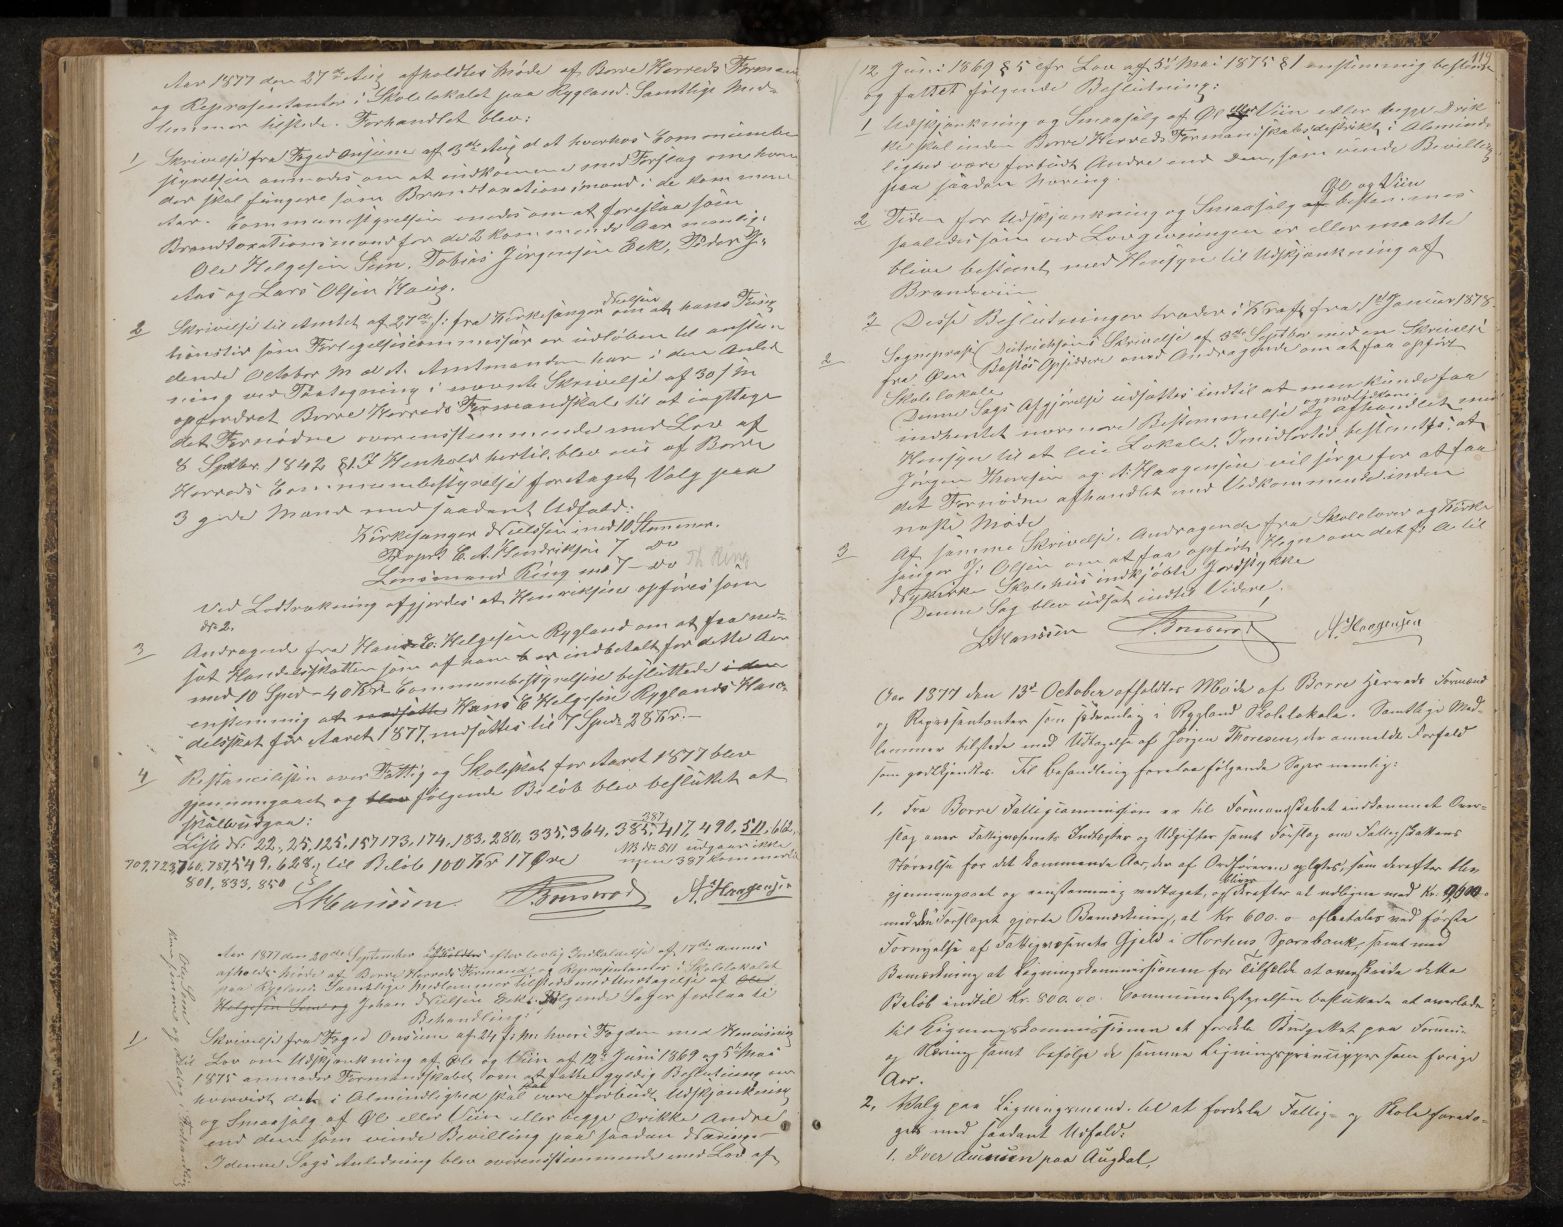 Aar 1877 den 27de Aug afholdtes Møde af Borre Herreds Formænd
og Repræsentanter i Skolelokalet paa Rygland. Samtlige Med-
lemmer tilstede. Forhandlet blev:
1 Skrivelse fra Foged Onsum af 3de Aug d. A. hvorhos Communebe
styrelsen anmodes om at indkomme med Forslag om hvem
der skal fungere som Brandtaxationsmænd i de kommende
Aar. Communestyrelsen enedes om at foreslaa som
Brandtaxationsmænd for de 2 kommende Aar nemlig:
Ole Helgesen Sem, Tobias Jørgensen Bek, Peder J:
Aas og Lars Olsen Haug.
2 Skrivelse til Amtet af 27de f: fra Kirkesanger Nielsen om at hans Fung
tionstid som Forligelsescommissær er udløben til anstun
dende October M. d. A. Amtmanden har i den Anled
ning ved Paategning i nævnte Skrivelse af 30 f M
opfordret Borre Herreds Formandskab til at iagttage
det Fornødne overensstemmende med Lov af
8 Septbr. 1842 §1. I Henhold hertil blev nu af Borre
Herreds Communebestyrelse foretaget Valg paa
3 gode Mænd med saadant Udfald:
Kirkesanger Nielsen med 10 Stemmer.
Propr. C. A. Hendriksen 7 do
Lensmand Ring med 7 - do Th Ring
Ved Lodtrækning afgjordes at Henriksen opføres som
No 2.
3 Andragende fra Hans E. Helgesen Rygland om at faa ned-
sat Handelsskatten som af ham er indbetalt for dette Aar
med 10 Spd - 40 Kr. Communebestyrelsen besluttede i den
enstemmig at nedsætte Hans E Helgesen Ryglands Han-
delsskat for Aaret 1877, nedsættes til 7 Spd 28 Kr. -
4 Restancelisten over Fattig og Skoleskat for Aaret 1877 blev
gjennemgaaet og blev følgende Beløb blev besluttet at
skulle udgaa:
387
Liste No 22, 25, 125, 157 173, 174, 183, 280, 335, 364, 385, 417, 490, 511, 662,
NB No 511 udgaar ikke
702, 723, 760, 787, 549, 628, til Beløb 100 Kr 17 Øre
men 387 kommer til
801, 833, 850
L Hanssen. A. Haagensen
Aar 1877 den 20de September afholdtes efter lovlig Indkaldelse af 17de dennes
afholdt Møde af Borre Herreds Formænd og Repræsentanter i Skolelokalet
paa Rygland. Samtlige Medlemmer tilstede med Undtagelse af Ole
Helgesen Sem og Johan Nielsen Bek. Følgende Sager foretaa til
Behandling:
1 Skrivelse fra Foged Onsum af 24 f: M: hvori Fogden med Henvisning
Lov om Udskjænkning af Øl og Viin af 12te Juni 1869 og 5te Mai
1875 anmoder Formandskabet om at fatte gyldig Beslutning om
hvorvidt det i Almindelighed skal være forbudt Udskjænkning
og Smaasalg af Øl eller Viin eller begge Drikke Andre
end dem som vinde Bevilling paa saadan Næring
I denne Sags Anledning blev overensstemmende med Lov af
119
12 Juni 1869 § 5 cfr Lov af 5te Mai 1875 § 1 enstemmig bestemt
og fattet følgende Beslutning:
1 Udskjænkning og Smaasalg af Øl eller Viin eller begge Drik
ke skal inden Borre Herreds Formandskabsdistrikt i Alminde
lighed være forbudt Andre end Dem, som vinde Bevilling
paa saadan Næring.
Øl og Viin
2 Tiden for Udskjænkning og Smaasalg af bestemmes
saaledes som ved Lovgivningen er eller maatte
blive bestemt med Hensyn til Udskjænkning af
Brændeviin
3 Disse Beslutninger træder i Kraft fra 1st Januar 1878.
2 Sognepræst Deitrichsons Skrivelse af 3de Septbr med en Skrivelse
fra Øen Bastøs Opsiddere med Andragende om at faa opført
Skolelokale
Denne Sags Afgjørelse udsættes indtil at man kunde faa
indhentet nærmere Bestemmelse og afhandlet med
Hensyn til at leie Lokale. Imidlertid bestemtes: at
Jørgen Thoresen og A. Haagensen vil sørge for at faa
det Fornødne afhandlet med Vedkommende inden
næste Møde
3 Af samme Skrivelse. Andragende fra Skolelærer og Kirke
sanger J: Olsen om at faa opført Hegn om det f: A. til
Nykirke Skolehus indkjøbte Jordstykke
Denne Sag blev udsat indtil Videre.
L Hanssen A. Haagensen
Aar 1877 den 13d October afholdtes Møde af Borre Herreds Formænd
og Repræsentanter som sædvanlig i Rygland Skolelokale. Samtlige Med-
lemmer tilstede med Udtagelse af Jørgen Thoresen, der anmeldte Forfald
som godkjendtes. Til Behandling foretaa følgende Sager nemlig:
1, Fra Borre Fattigcommission er til Formandskabet indkommet Over-
slag over Fattigvæsenets Indtægter og Udgifter samt Forslag om Fattigskattens
Størrelse for det kommende Aar, der af Ordføreren oplæstes, som derefter blev
gjennemgaaet og enstemmig vedtaget, og bliver derefter at udligne med Kr. 9,400 -
med den Forslaget gjorte Bemærkning, at Kr 600. o afbetales ved første
Fornyelse af Fattigvæsenets Gjæld i Hortens Sparebank, samt med
Bemærkning at Ligningskommissionen for Tilfælde at overskride dette
Beløb indtil Kr. 800. o o. Communebestyrelsen besluttede at overlade
til Ligningskommissionen at fordele Budgettet paa Formue
og Næring samt befølge de samme Ligningsprincipper som forrige
Aar.
2, Valg paa Ligningsmænd til at fordele Fattig- og Skole foreto-
ges med saadant Udfald:
1. Iver Aunsen paa Augdal,